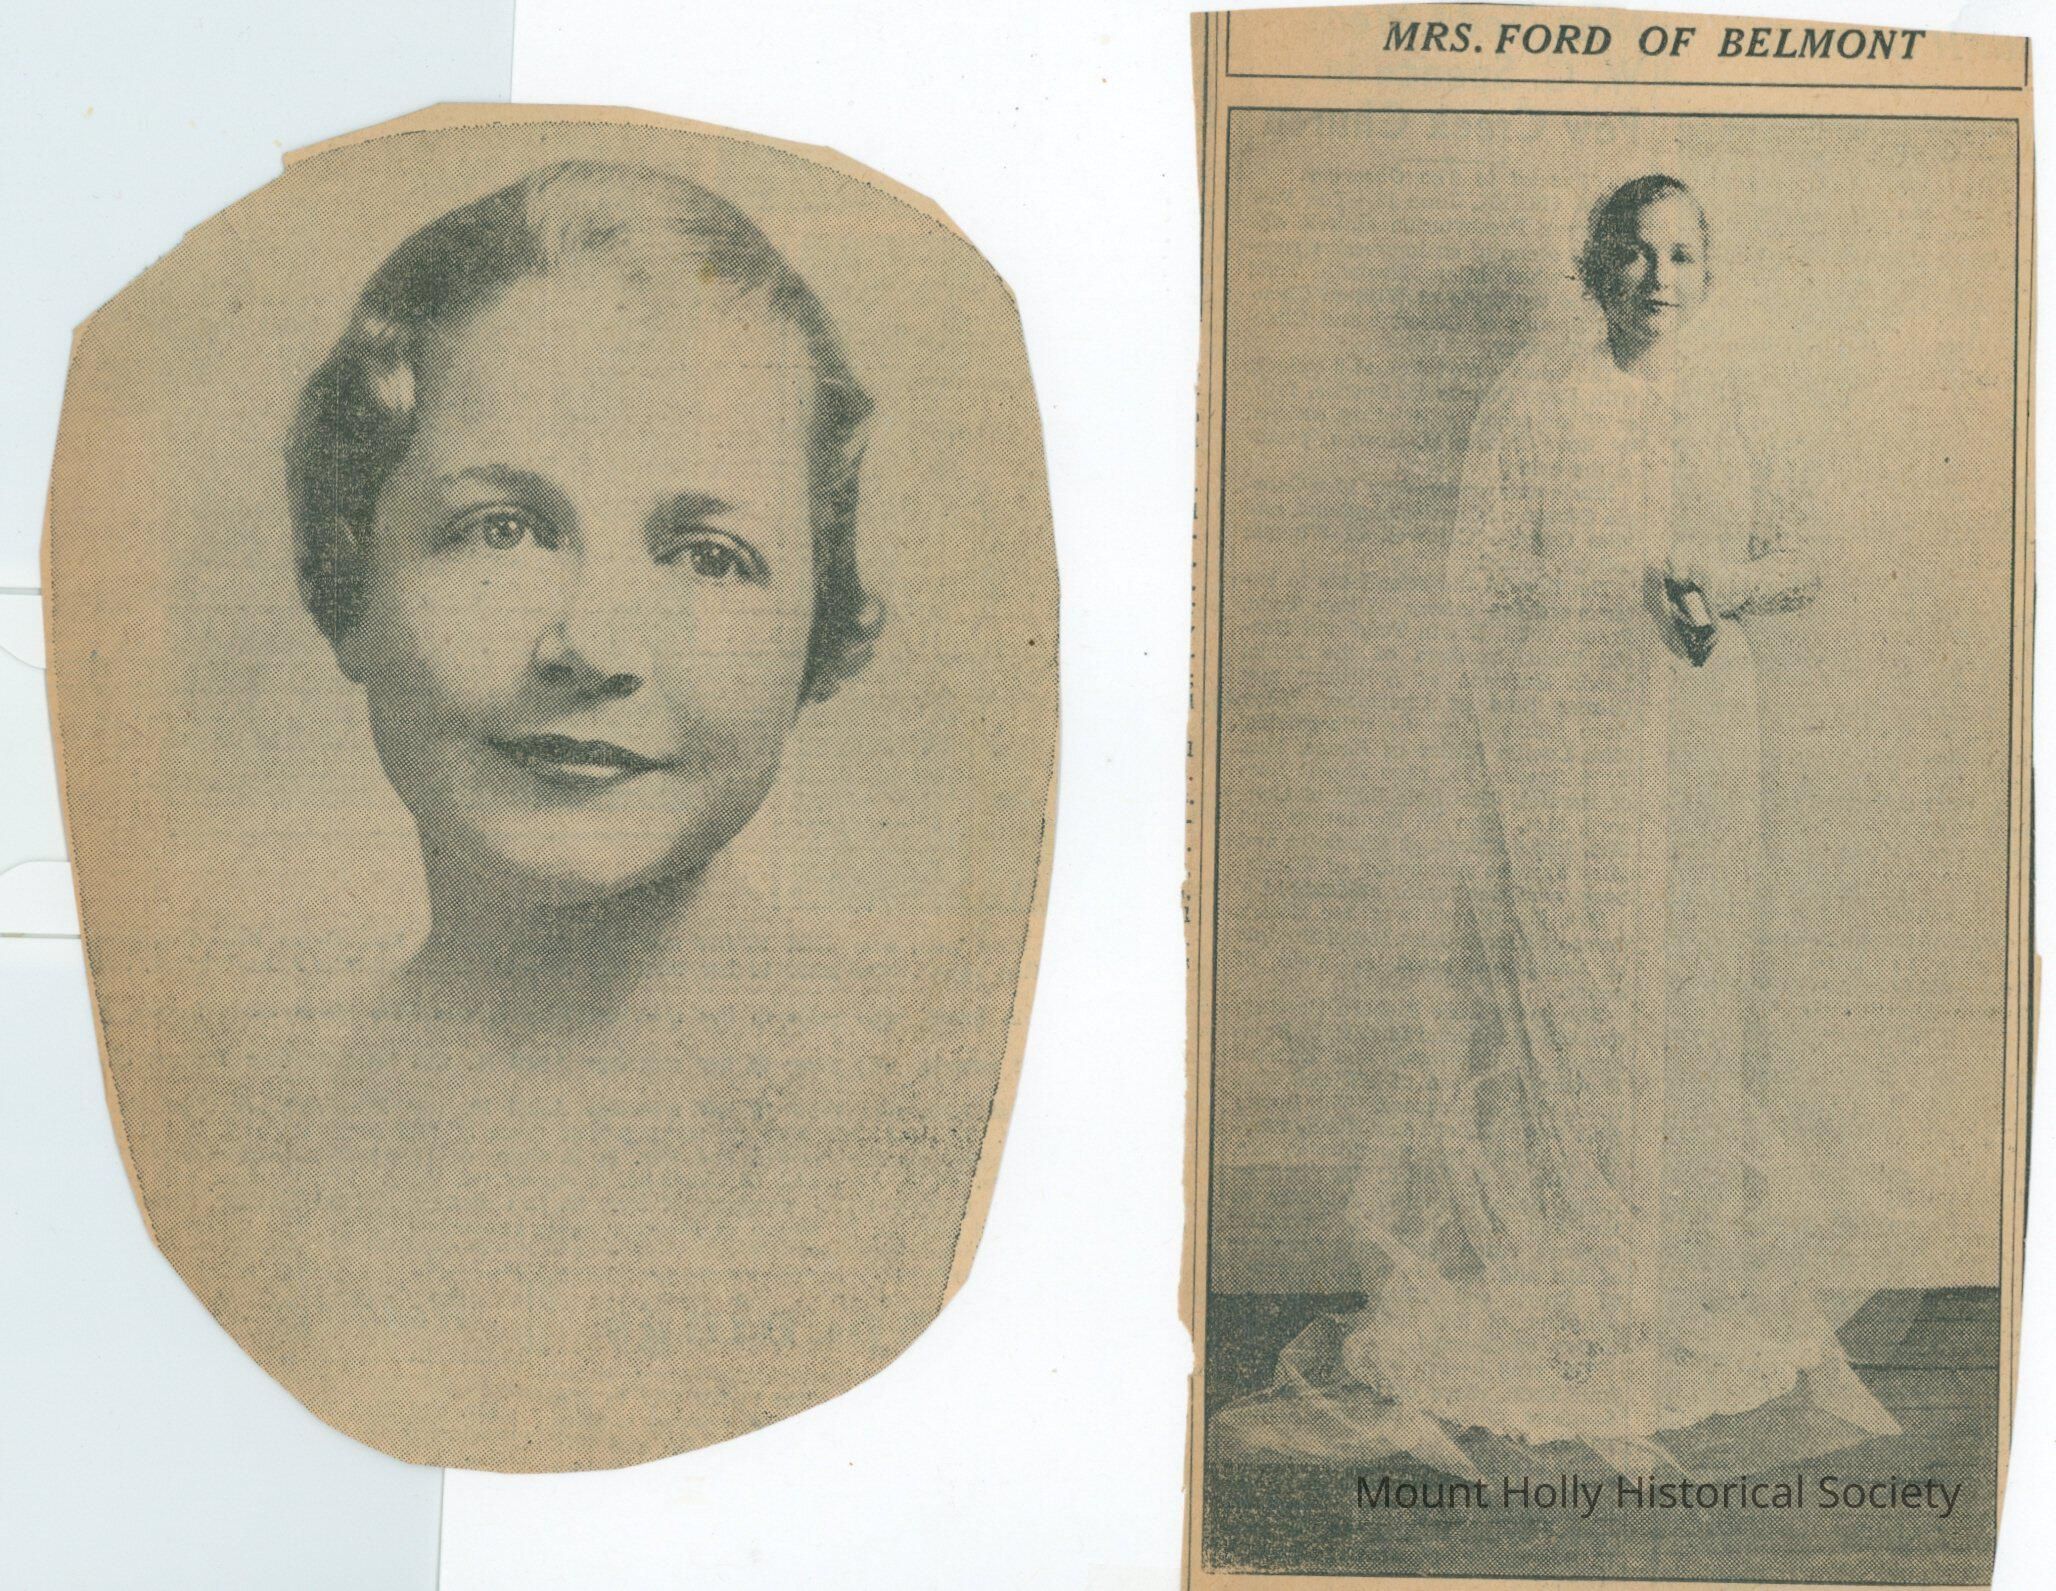 MRS. FORD OF BELMONT
Mount Holly Historical Society